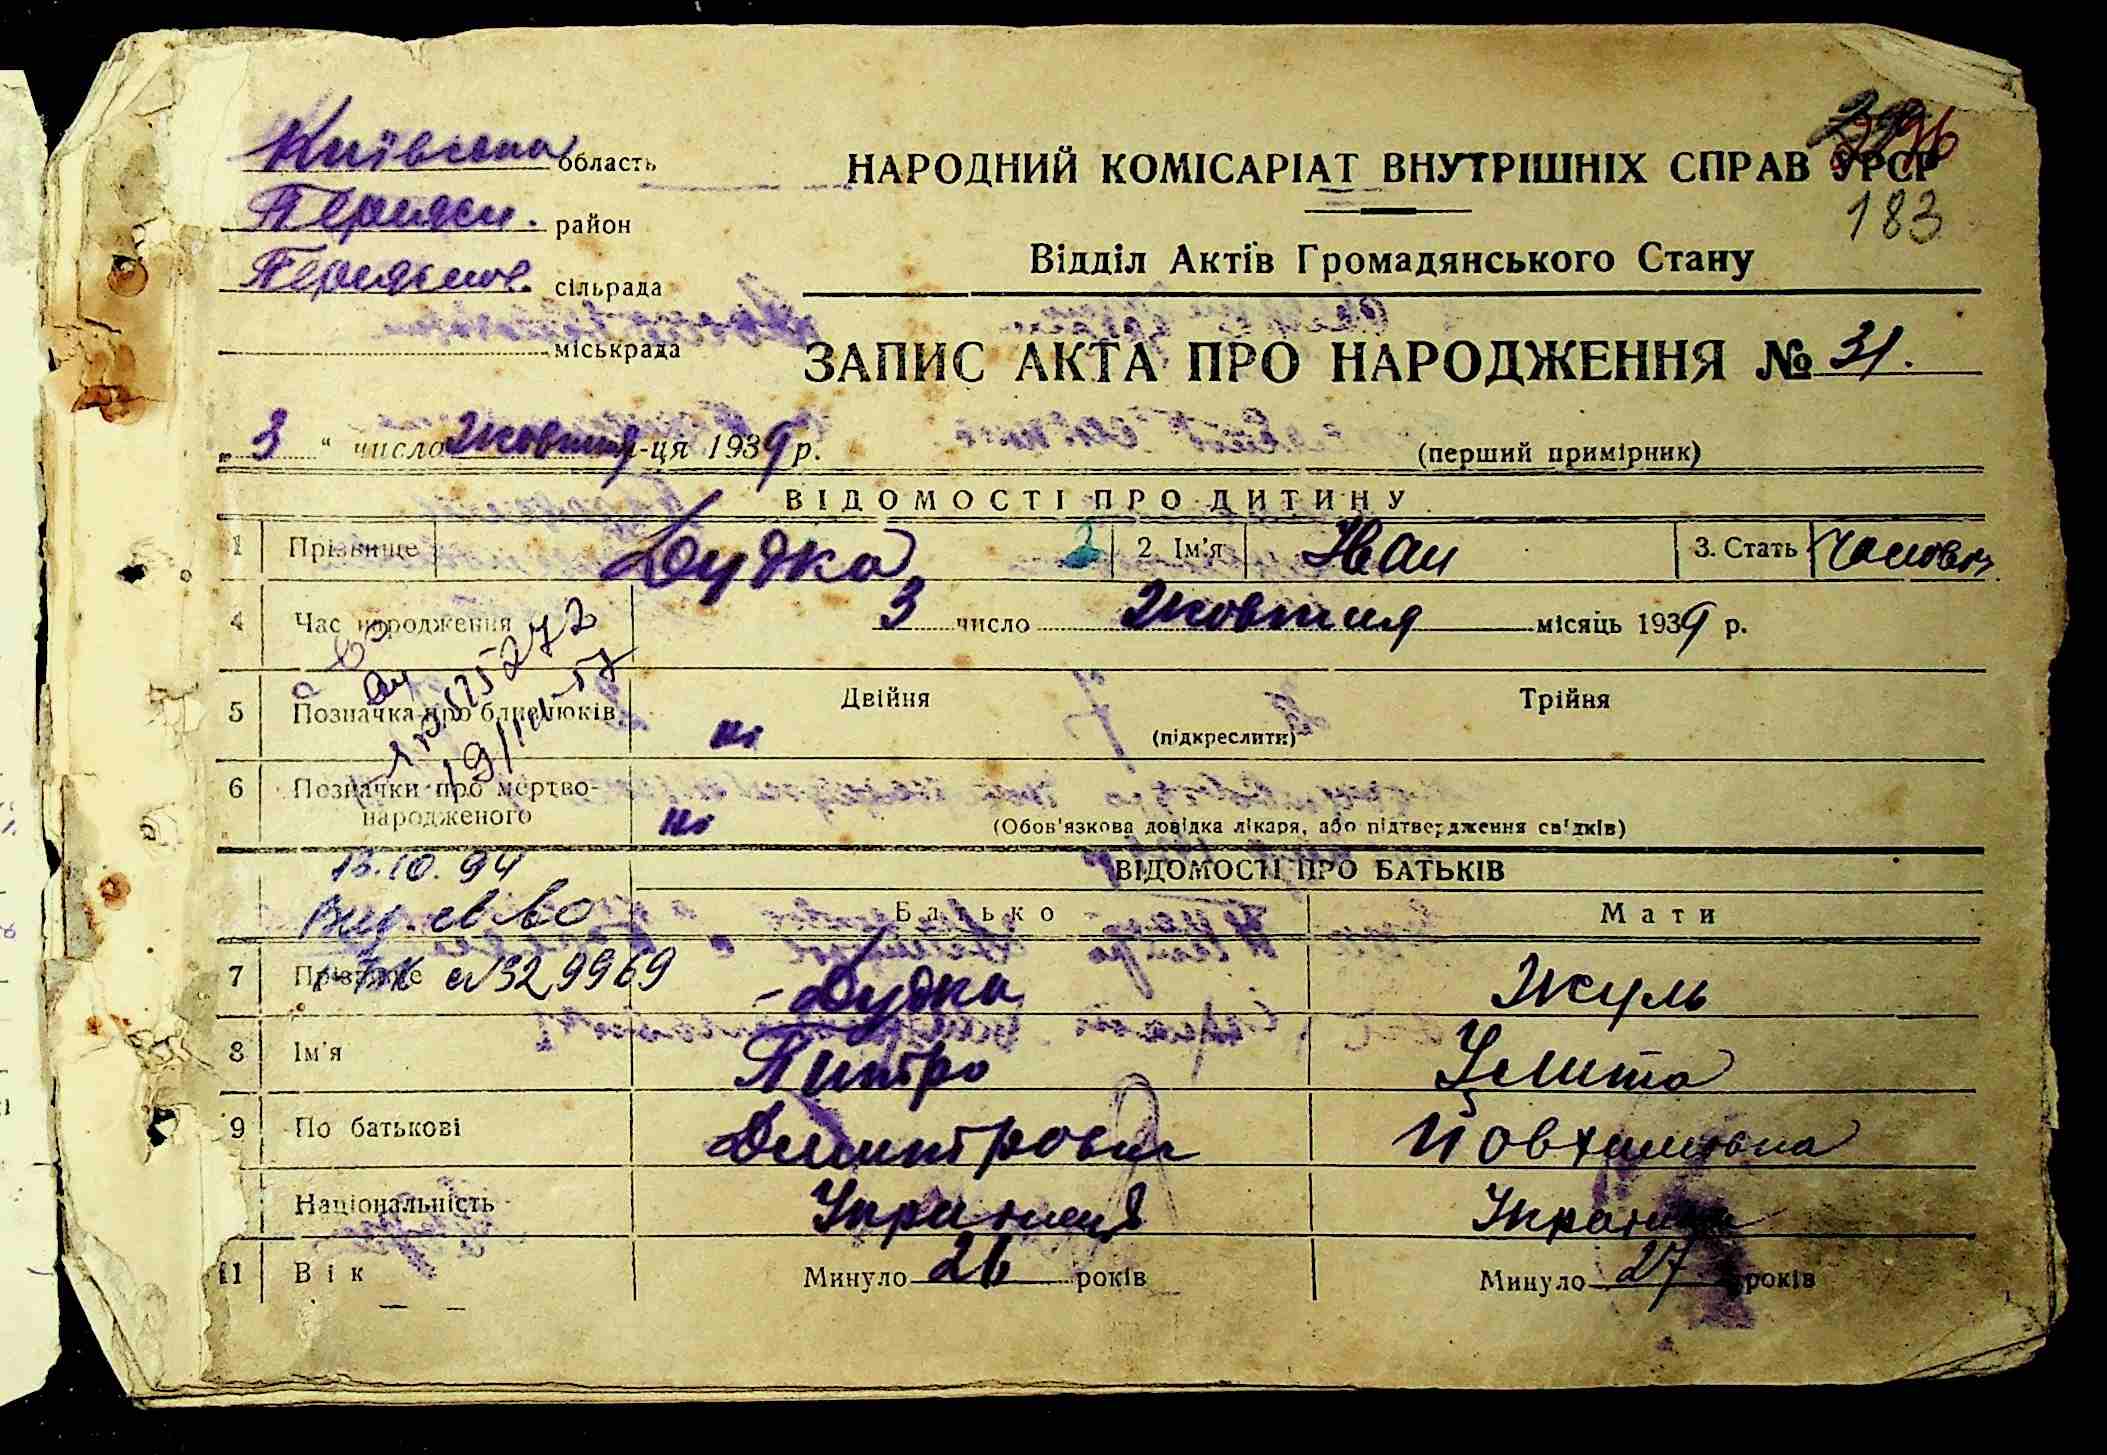 Київська область
район
сільрада
міськрада
НАРОДНИЙ КОМІСАРІАТ ВНУТРІШНІХ СПРАВ УРСР
183
Відділ Актів Громадянського Стану
ЗАПИС АКТА ПРО НАРОДЖЕННЯ № 31.
„3“ число Жовтня-ця 1939 р.
(перший примірник)
ВІДОМОСТІ ПРО ДИТИНУ
1 Прізвище Дудка 2 2 Ім'я Іван 3. Стать
4 Час народження 3 число Жовтня місяць 1939 р.
5 Позначка про близнюків ні Двійня (підкреслити) Трійня
6 Позначки про мертво-
народженого ні (Обов'язкова довідка лікаря, або підтвердження свідків)
13.10.94
ВІДОМОСТІ ПРО БАТЬКІВ
Батько Мати
7 Прізвище Дудка Жуль
329969
8 Ім'я Питро Улита
9 По батькові Димитрович
Національність
11 Вік Минуло 26 років Минуло 27 років